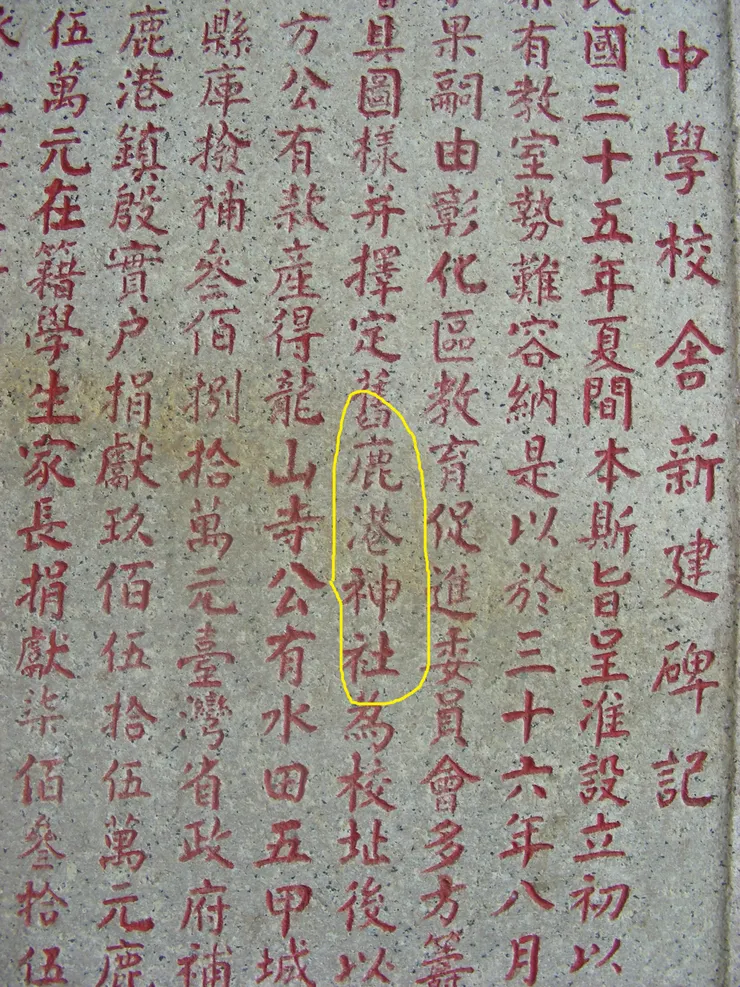 中學校舍新建碑記
國三十五年夏間本斯旨呈准設立初以
有教室勢難容納是以於三十六年八月
果嗣由彰化區教育促進委員會多方籌
具圖樣并擇定舊鹿港神社為校址後以
方公有款產得龍山寺公有水田五甲城
縣庫撥補叄佰捌拾萬元臺灣省政府補
鹿港鎮殷實户捐獻玖佰伍拾伍萬元鹿
伍萬元在籍學生家長捐獻柒佰叄拾伍